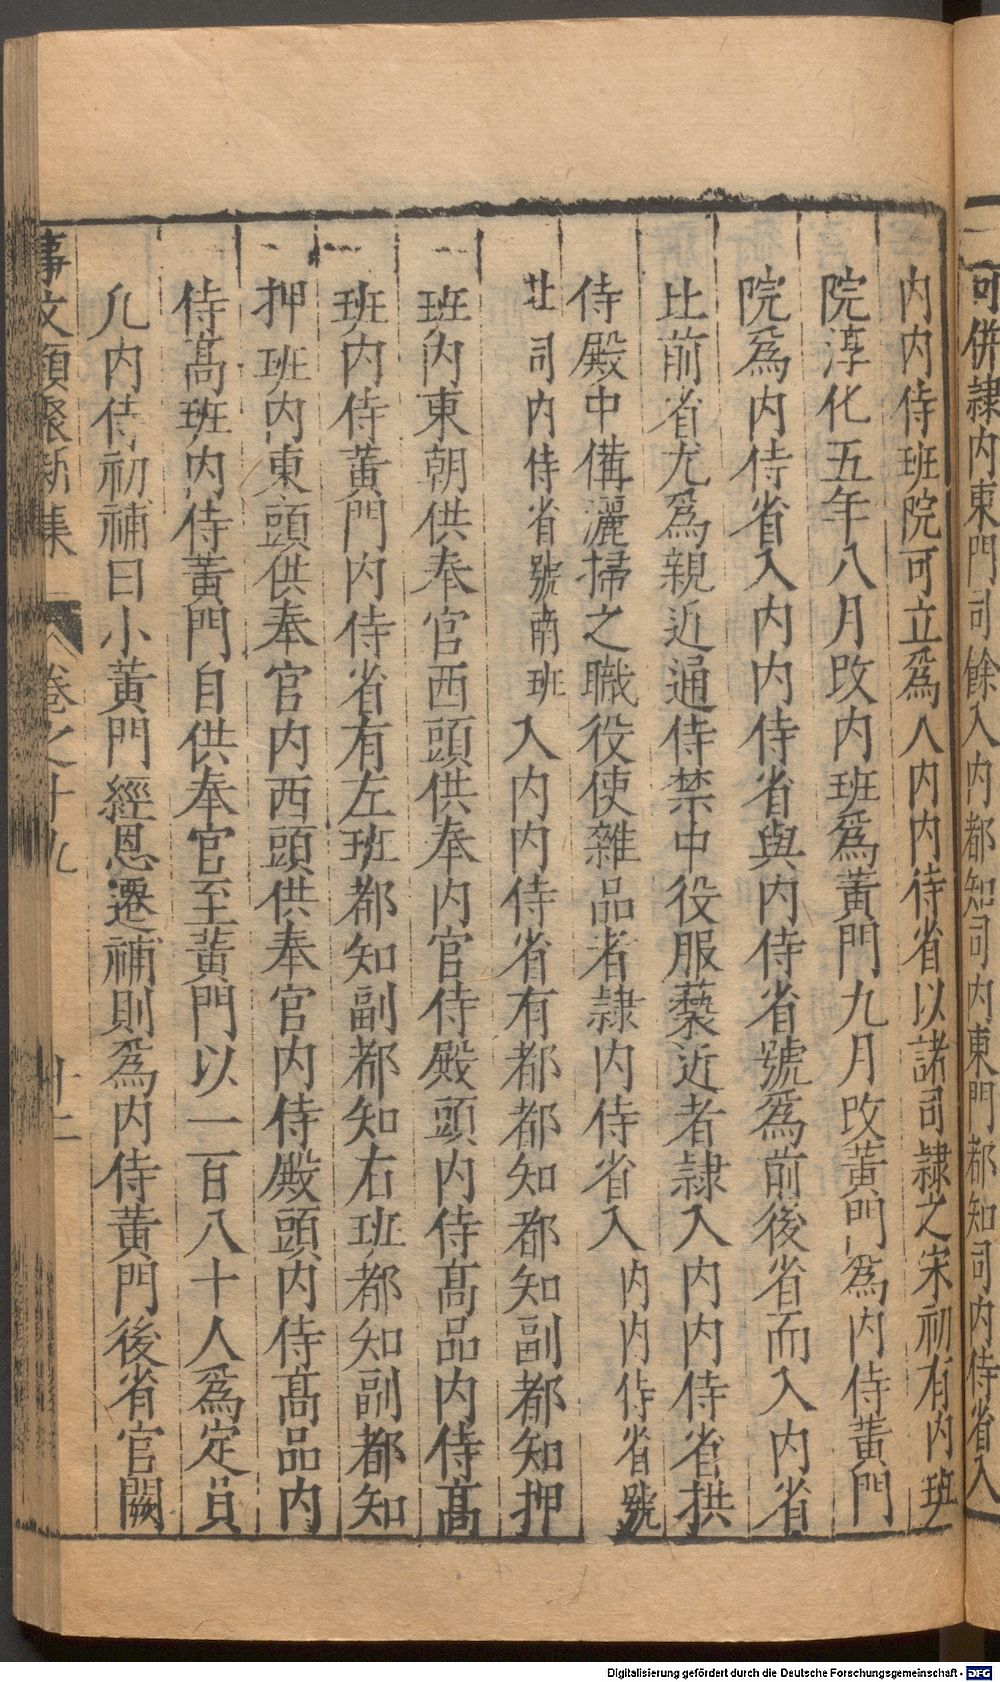 可併隷内東門司餘入内都知司内東門都知司内侍省入
内内侍班院可立爲入内内侍省以諸司隷之宋初有内班
院淳化五年八月改内班爲黄門九月改黄門爲内侍黄門
院爲内侍省入内内侍省與内侍省號爲前後省而入内省
比前省尤爲親近通侍禁中役服藝近者隷入内内侍省拱
侍殿中備灑掃之職役使雜品者隷内侍省入内内侍省號
北司内侍省號南班入内内侍省有都都知都知副都知押
班内東朝供奉官西頭供奉内官侍殿頭内侍髙品内侍髙
班内侍黄門内侍省有左班都知副都知右班都知副都知
押班内東頭供奉官内西頭供奉官内侍殿頭内侍髙品内
侍髙班内侍黄門自供奉官至黄門以一百八十人爲定員
凡内侍初補曰小黄門經恩遷補則爲内侍黄門後省官闕
事文類聚新集 卷之十九
Digitalisierung gefördert durch die Deutsche Forschungsgemeinschaft - DFG